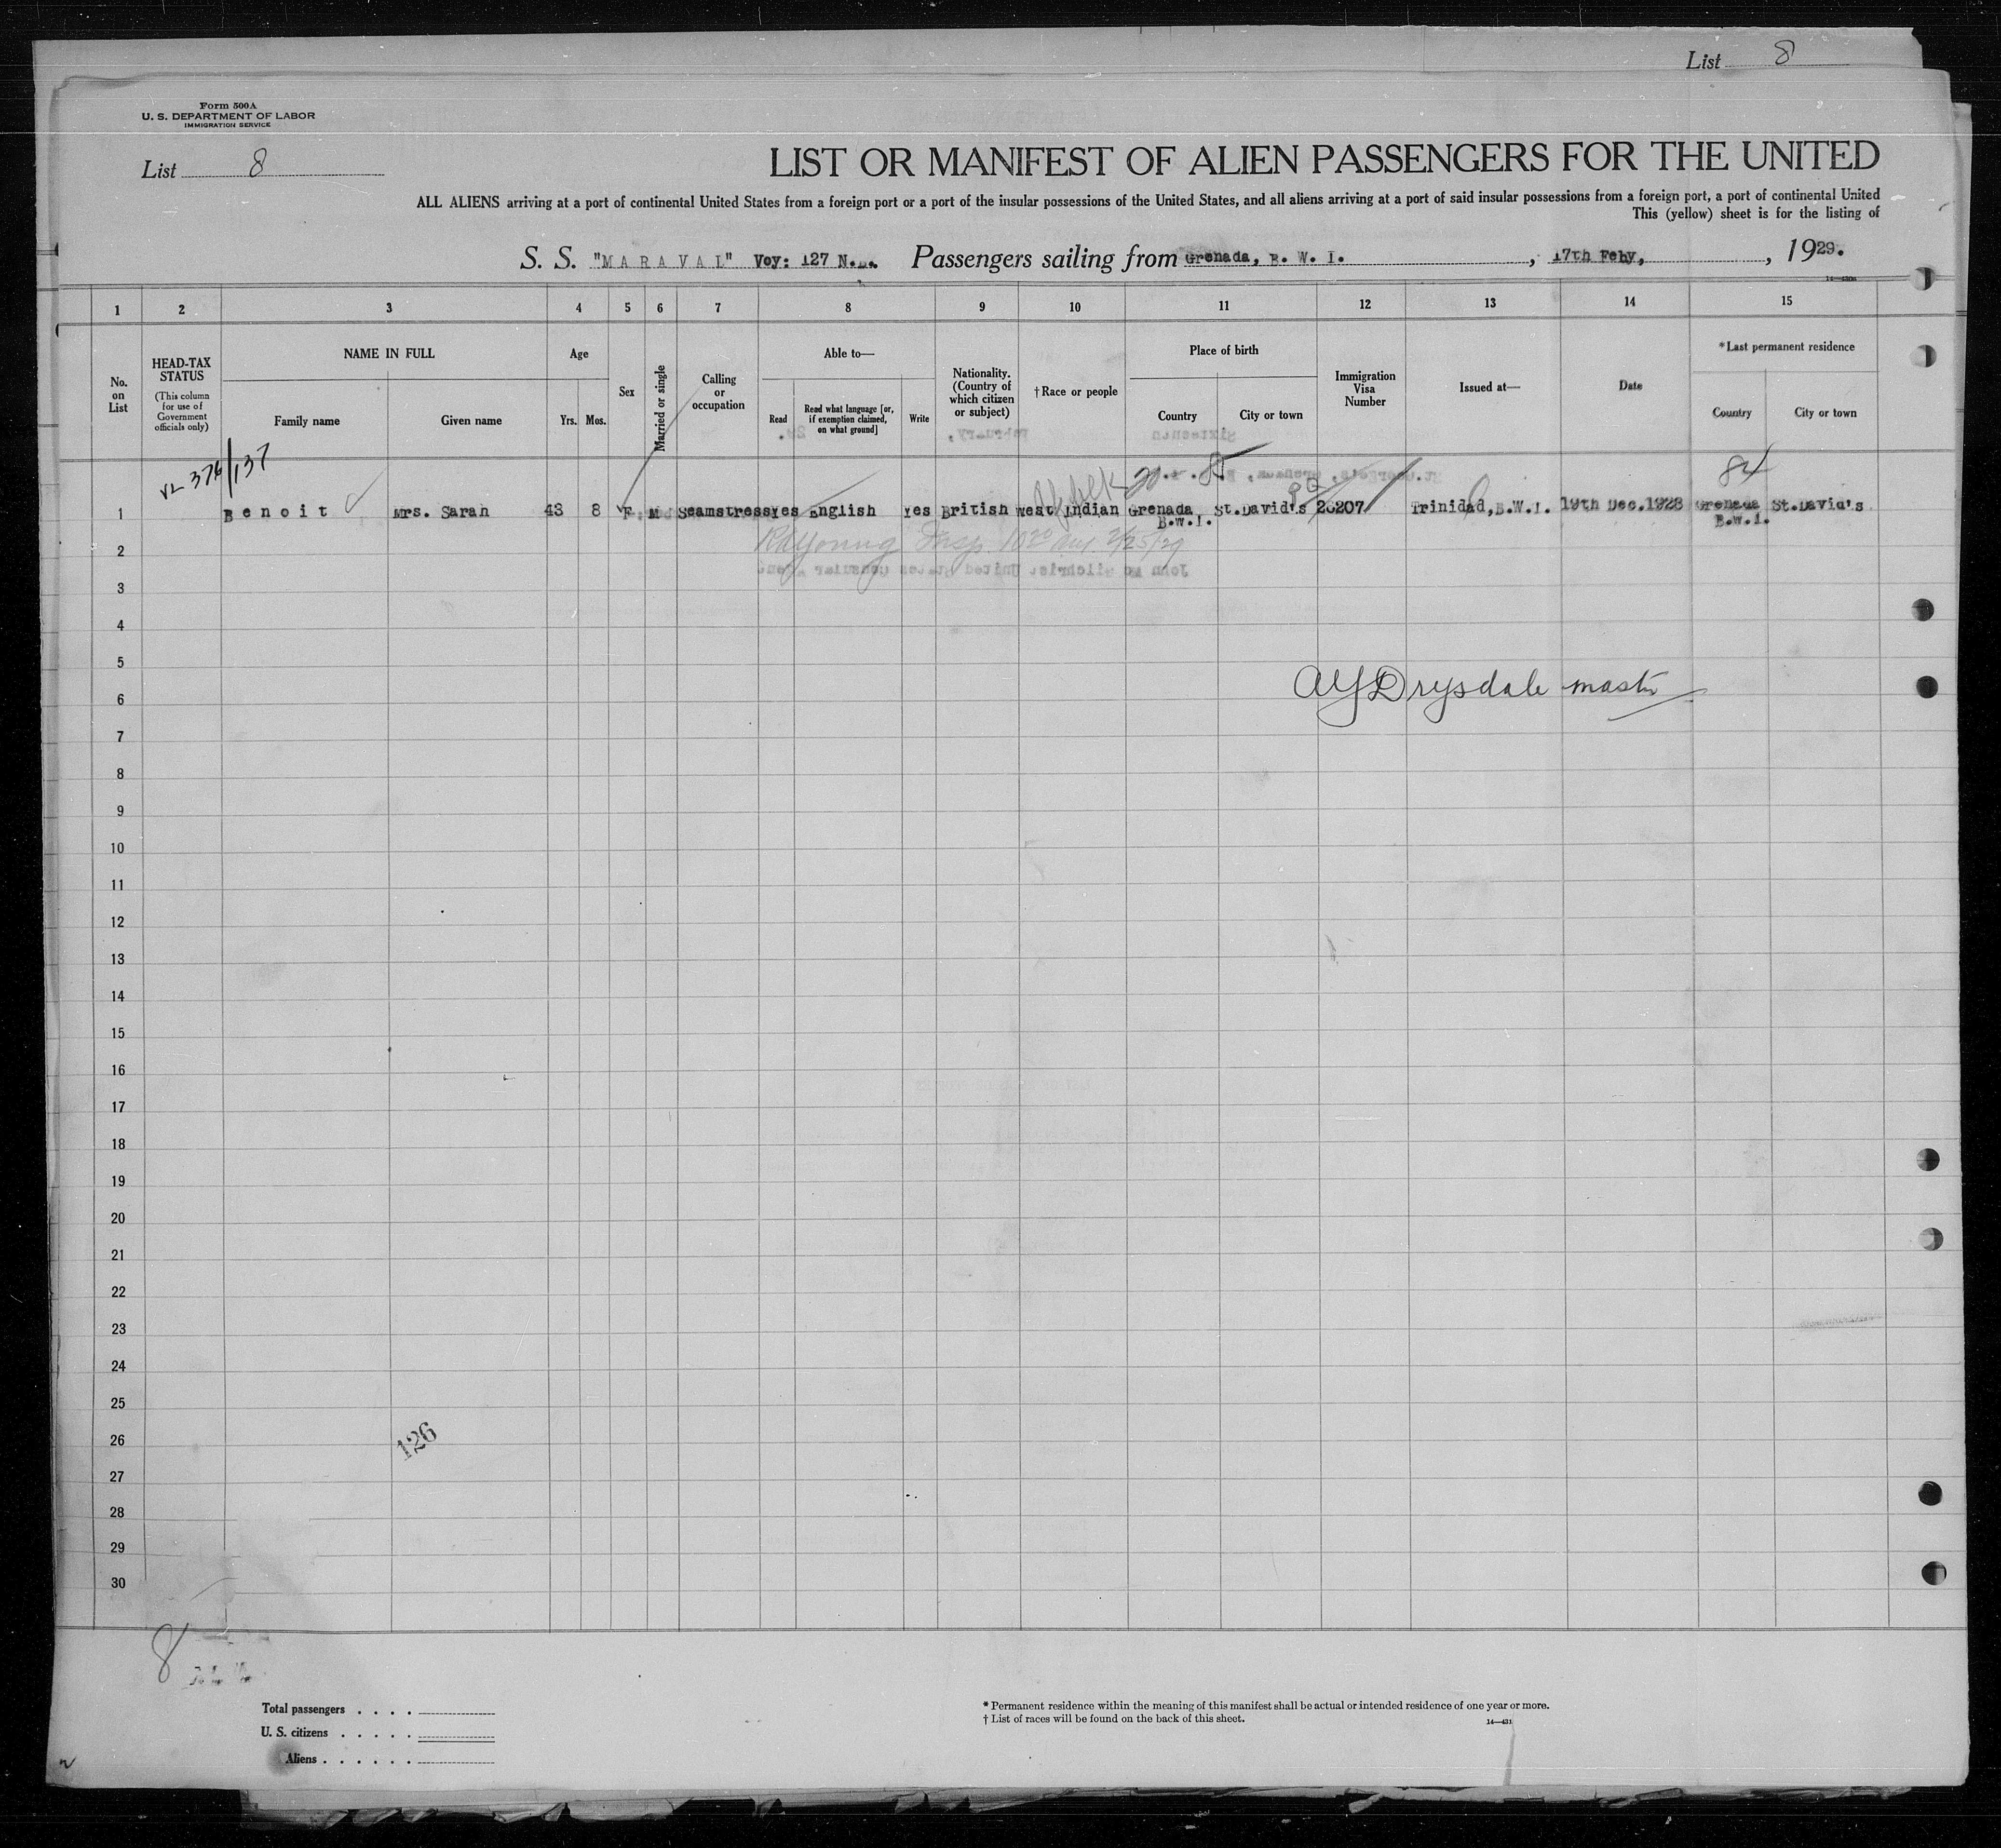 List 8
Form 500A
U. S. DEPARTMENT OF LABOR
IMMIGRATION SERVICE
List 8
LIST OR MANIFEST OF ALIEN PASSENGERS FOR THE UNITED
ALL ALIENS arriving at a port of continental United States from a foreign port or a port of the insular possessions of the United States, and all aliens arriving at a port of said insular possessions from a foreign port, a port of continental United
This (yellow) sheet is for the listing of
S. S. "MARAVAL" Voy: 127 N. Passengers sailing from Grenada, B. W. I. , 17th Feby, , 1929.
1 2 3 4 5 6 7 8 9 10 11 12 13 14 15
No. on List
HEAD-TAX STATUS
(This column for use of Government officials only)
NAME IN FULL
Family name Given name
Age
Yrs. Mos.
Sex
Married or single
Calling or occupation
Able to—
Read
Read what language [or, if exemption claimed, on what ground]
Write
Nationality. (Country of which citizen or subject)
† Race or people
Place of birth
Country City or town
Immigration Visa Number
Issued at—
Date
* Last permanent residence
Country City or town
376/137
84
1 Benoit Mrs. Sarah 43 8 F M Seamstress Yes English Yes British West Indian Grenada St.David's 26207 Trinidad, B.W.I. 19th Dec. 1928 Grenada St.David's
B.W.I. B.W.I.
2
Insp. 10 20 am. 2/25/29
3
4
5
6
AY Drysdale master
7
8
9
10
11
12
13
14
15
16
17
18
19
20
21
22
23
24
25
26
126
27
28
29
30
8
Total passengers . . . .
U. S. citizens . . . . .
Aliens . . . . . .
* Permanent residence within the meaning of this manifest shall be actual or intended residence of one year or more.
† List of races will be found on the back of this sheet.
14—431